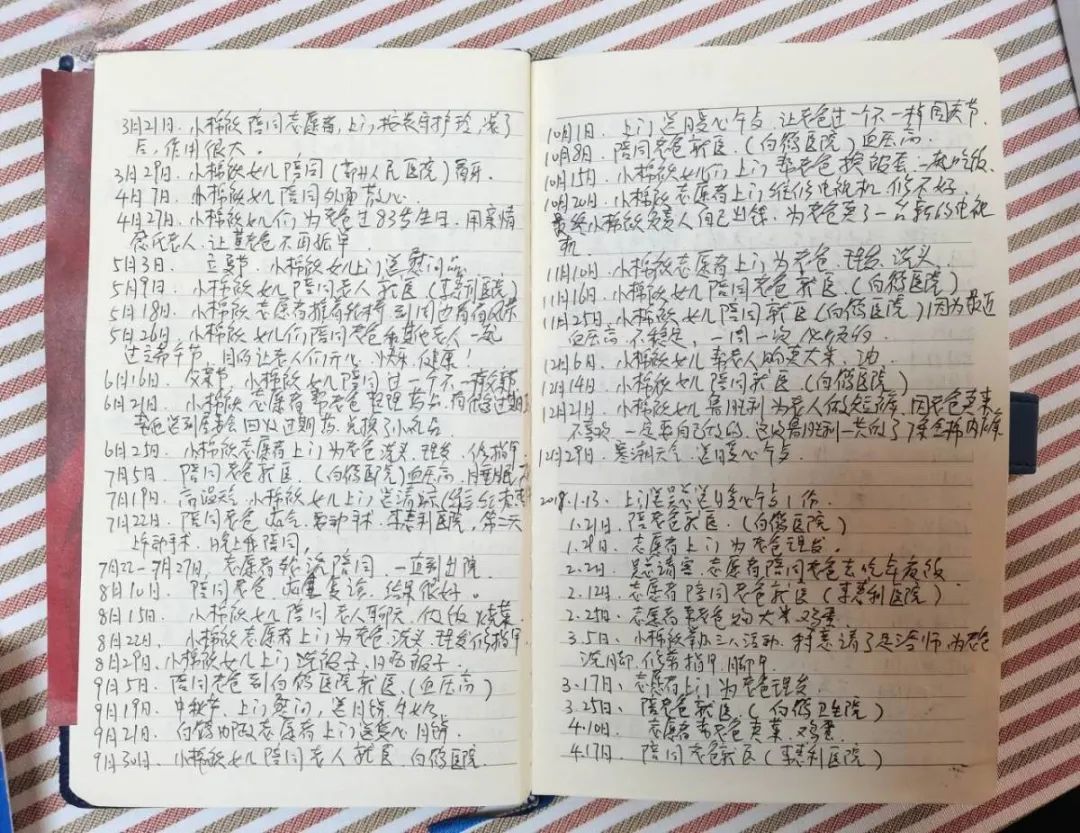 3月21日、小棉袄陪同志愿者,上门按装守护铃,装了
后,作用很大。
3月29日、小棉袄女儿陪同(鄞州人民医院)看牙.
4月7日、小棉袄女儿陪同外面散心.
4月27日、小棉袄女儿们为老爸过83岁生日、用亲情
慰氏老人、让老爸不再孤单.
5月3日、立夏节、小棉袄女儿上门送慰问品.
5月9日、小棉袄女儿陪同老人就医(李惠利医院)
5月18日、小棉袄志愿者推着轮椅到
5月26日、小棉袄女儿们陪同老爸和其他老人一起
过端午节、目的让老人们开心、快乐、健康!
6月16日、父亲节、小棉袄女儿陪同过一个不一样父亲节
6月21日、小棉袄志愿者帮老爸整理药品、
回收过期药、兑换了小礼品
6月25日、小棉袄志愿者上门为老爸洗头、理发、修指甲.
7月5日、陪同老爸就医、(白鹤医院)血压高、睡眠
7月19日、高温天、小棉袄女儿上门送清凉(
7月22日、陪同老爸疝气、要动手术、李惠利医院、第二天
上午动手术、晚上陪同.
7月22-7月27日、志愿者轮流陪同、一直到出院.
8月10日、陪同老爸疝气复诊、结果很好。
8月15日、小棉袄女儿陪同老人聊天、做饭、烧菜.
8月22日、小棉袄志愿者上门为老爸、洗头、理发、修指甲.
8月29日、小棉袄女儿上门洗被子、日晒被子.
9月5日、陪同老爸到白鹤医院就医、(血压高)
9月19日、中秋节、上门慰问、送月饼、牛奶
9月21日、白鹤邮政志愿者上门送爱心月饼.
9月30日、小棉袄女儿陪同老人就医、白鹤医院.
10月1日、上门送暖心午点、让老爸过一个不一样国庆节.
10月8日、陪同老爸就医、(白鹤医院)血压高.
10月15日、小棉袄女儿们上门帮老爸换被套、一起吃饭、
10月20日、小棉袄志愿者上门维修电视机、修不好、
最终小棉袄负责人自己出钱、为老爸买了一台新的电视
机
11月10日、小棉袄志愿者上门为老爸、理发、洗头.
11月16日、小棉袄女儿陪同老爸就医、(白鹤医院)
11月25日、小棉袄女儿陪同就医(白鹤医院)因为最近
血压高、不稳定、一周一次必须的
12月6日、小棉袄女儿帮老人购买大米、油
12月14日、小棉袄女儿陪同就医、(白鹤医院)
12月21日、小棉袄女儿鲁胜利为老人做短裤、因老爸买来
不喜欢、一定要自己做的、这次鲁胜利一共做了7条全棉内裤
12月29日、寒潮天气、送暖心午点.
2018.1.13、上门送暖心午点1份
1.21日、陪老爸就医、(白鹤医院)
1.29日、志愿者上门为老爸理发.
2.2日、请客、志愿者陪同老爸去吃年夜饭
2.12日、志愿者陪同老爸就医(李惠利医院)
2.25日、志愿者帮老爸购大米、鸡蛋
3.5日、小棉袄活动、特意请了足浴师、为老爸
洗脚、修剪指甲、脚甲
3.17日、志愿者上门为老爸理发.
3.25日、陪老爸就医、(白鹤卫生院)
4.10日、志愿者帮老爸买菜、鸡蛋.
4.17日、陪同老爸就医(李惠利医院)